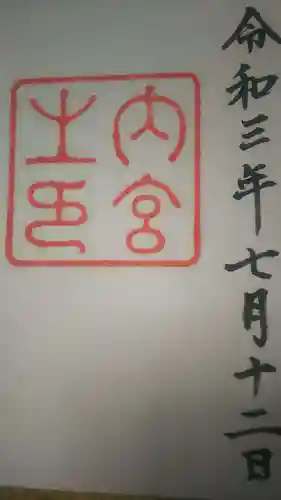 令和三年七月十二日
内宮
之印